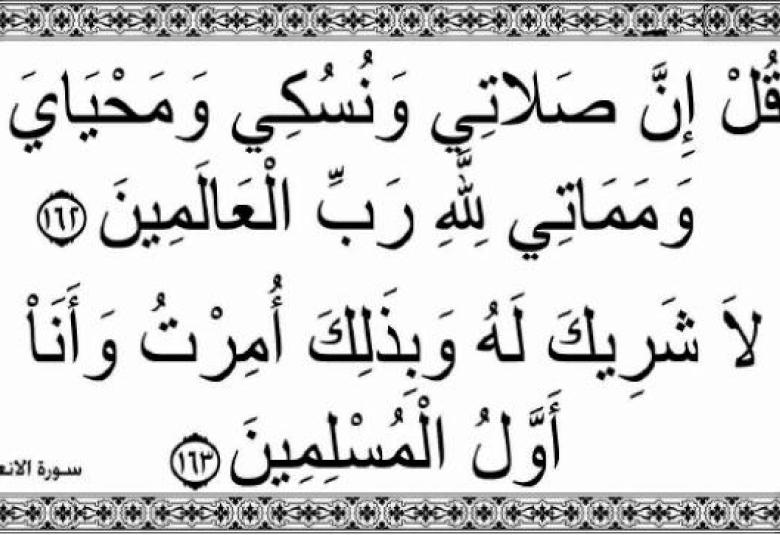 قُلْ إِنَّ صَلاَتِي وَنُسُكِي وَمَحْيَايَ
وَمَمَاتِي لِلَّهِ رَبِّ الْعَالَمِينَ ﴿١٦٢﴾
لاَ شَرِيكَ لَهُ وَبِذَلِكَ أُمِرْتُ وَأَنَاْ
أَوَّلُ الْمُسْلِمِينَ ﴿١٦٣﴾
سورة الانع